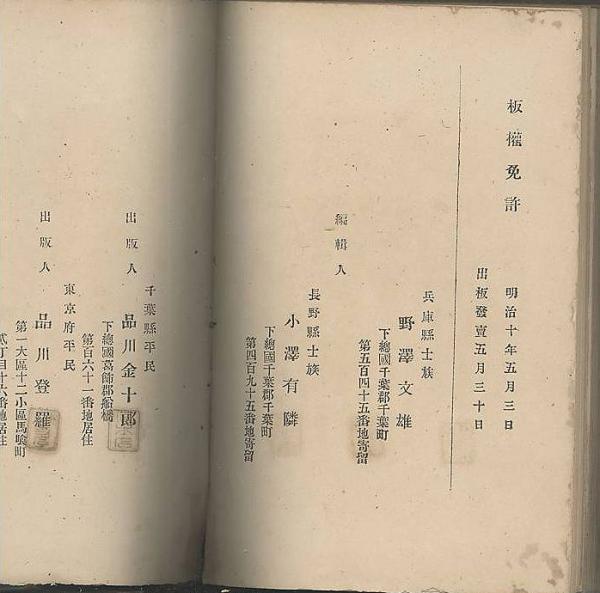 板權免許
明治十年五月三日
出板發賣五月三十日
編輯人
兵庫縣士族
野澤文雄
下總國千葉郡千葉町
第五百四十五番地寄留
長野縣士族
小澤有隣
下總國千葉郡千葉町
第四百九十五番地寄留
千葉縣平民
出版人 品川金十郎
下總國葛飾郡船橋
第百六十一番地居住
東京府平民
出版人 品川登羅
第一大區十二小區馬喰町
貳丁目十六番地居住